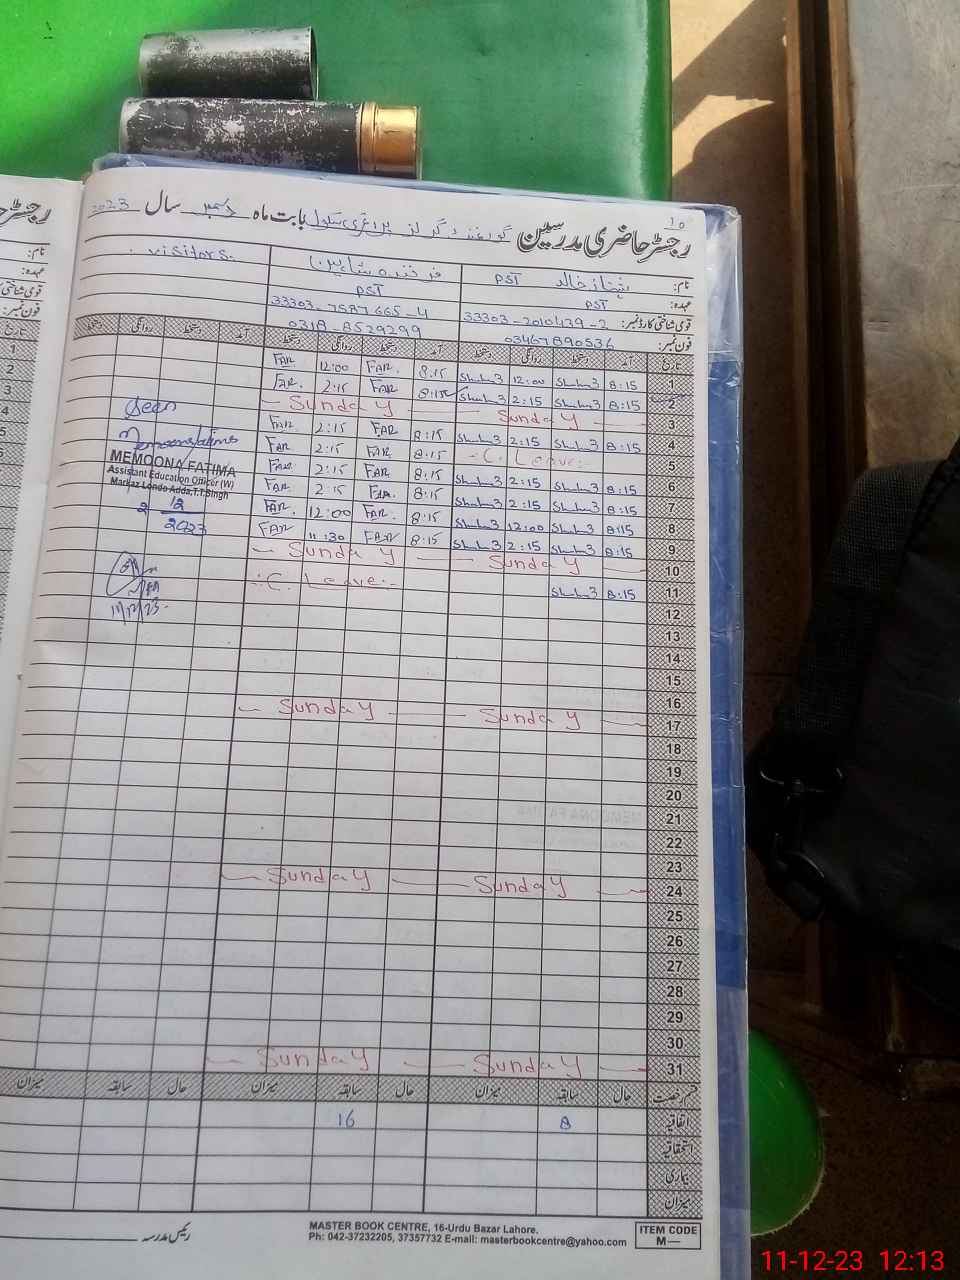 10
رجسٹر حاضری مدرسین گورنمنٹ گرلز پرائمری سکول بابت ماہ دسمبر سال 2023
نام: شہناز خالد PST فرخندہ شاہین visitors.
عہدہ: PST PST
قومی شناختی کارڈ نمبر: 33303-2010439-2 33303-7587665-4
فون نمبر: 03467890536 0318-8529299
تاریخ آمد دستخط روانگی دستخط آمد دستخط روانگی دستخط آمد دستخط روانگی دستخط
1 8:15 12:00 8:15 FAR 12:00 FAR
2 8:15 2:15 8:15 FAR 2:15 FAR.
3 Sunday Sunday
4 8:15 2:15 8:15 FAR 2:15 FAR.
5 C. Leave 8:15 FAR 2:15 FAR
6 8:15 2:15 8:15 FAR 2:15 FAR
7 8:15 2:15 8:15 FAR. 2:15 FAR.
8 8:15 12:00 8:15 FAR. 12:00 FAR.
9 8:15 2:15 8:15 FAR 11:30 FAR
10 Sunday Sunday
11 8:15 C. Leave
12
13
14
15
16
17 Sunday Sunday
18
19
20
21
22
23
24 Sunday Sunday
25
26
27
28
29
30
31 Sunday Sunday
Seen
MEMOONA FATIMA
Assistant Education Officer (W)
Markaz Londo Adda,T.T.Singh
2 12
2023
11/12/23
قسم رخصت حال سابقہ میزان حال سابقہ میزان حال سابقہ میزان
اتفاقیہ 8 16
استحقاقیہ
بیماری
میزان
رئیس مدرسہ
MASTER BOOK CENTRE, 16-Urdu Bazar Lahore.
Ph: 042-37232205, 37357732 E-mail: masterbookcentre@yahoo.com
ITEM CODE
M—
رجسٹر
نام:
عہدہ:
فون نمبر:
تاریخ
1
2
3
4
5
6
11-12-23 12:13